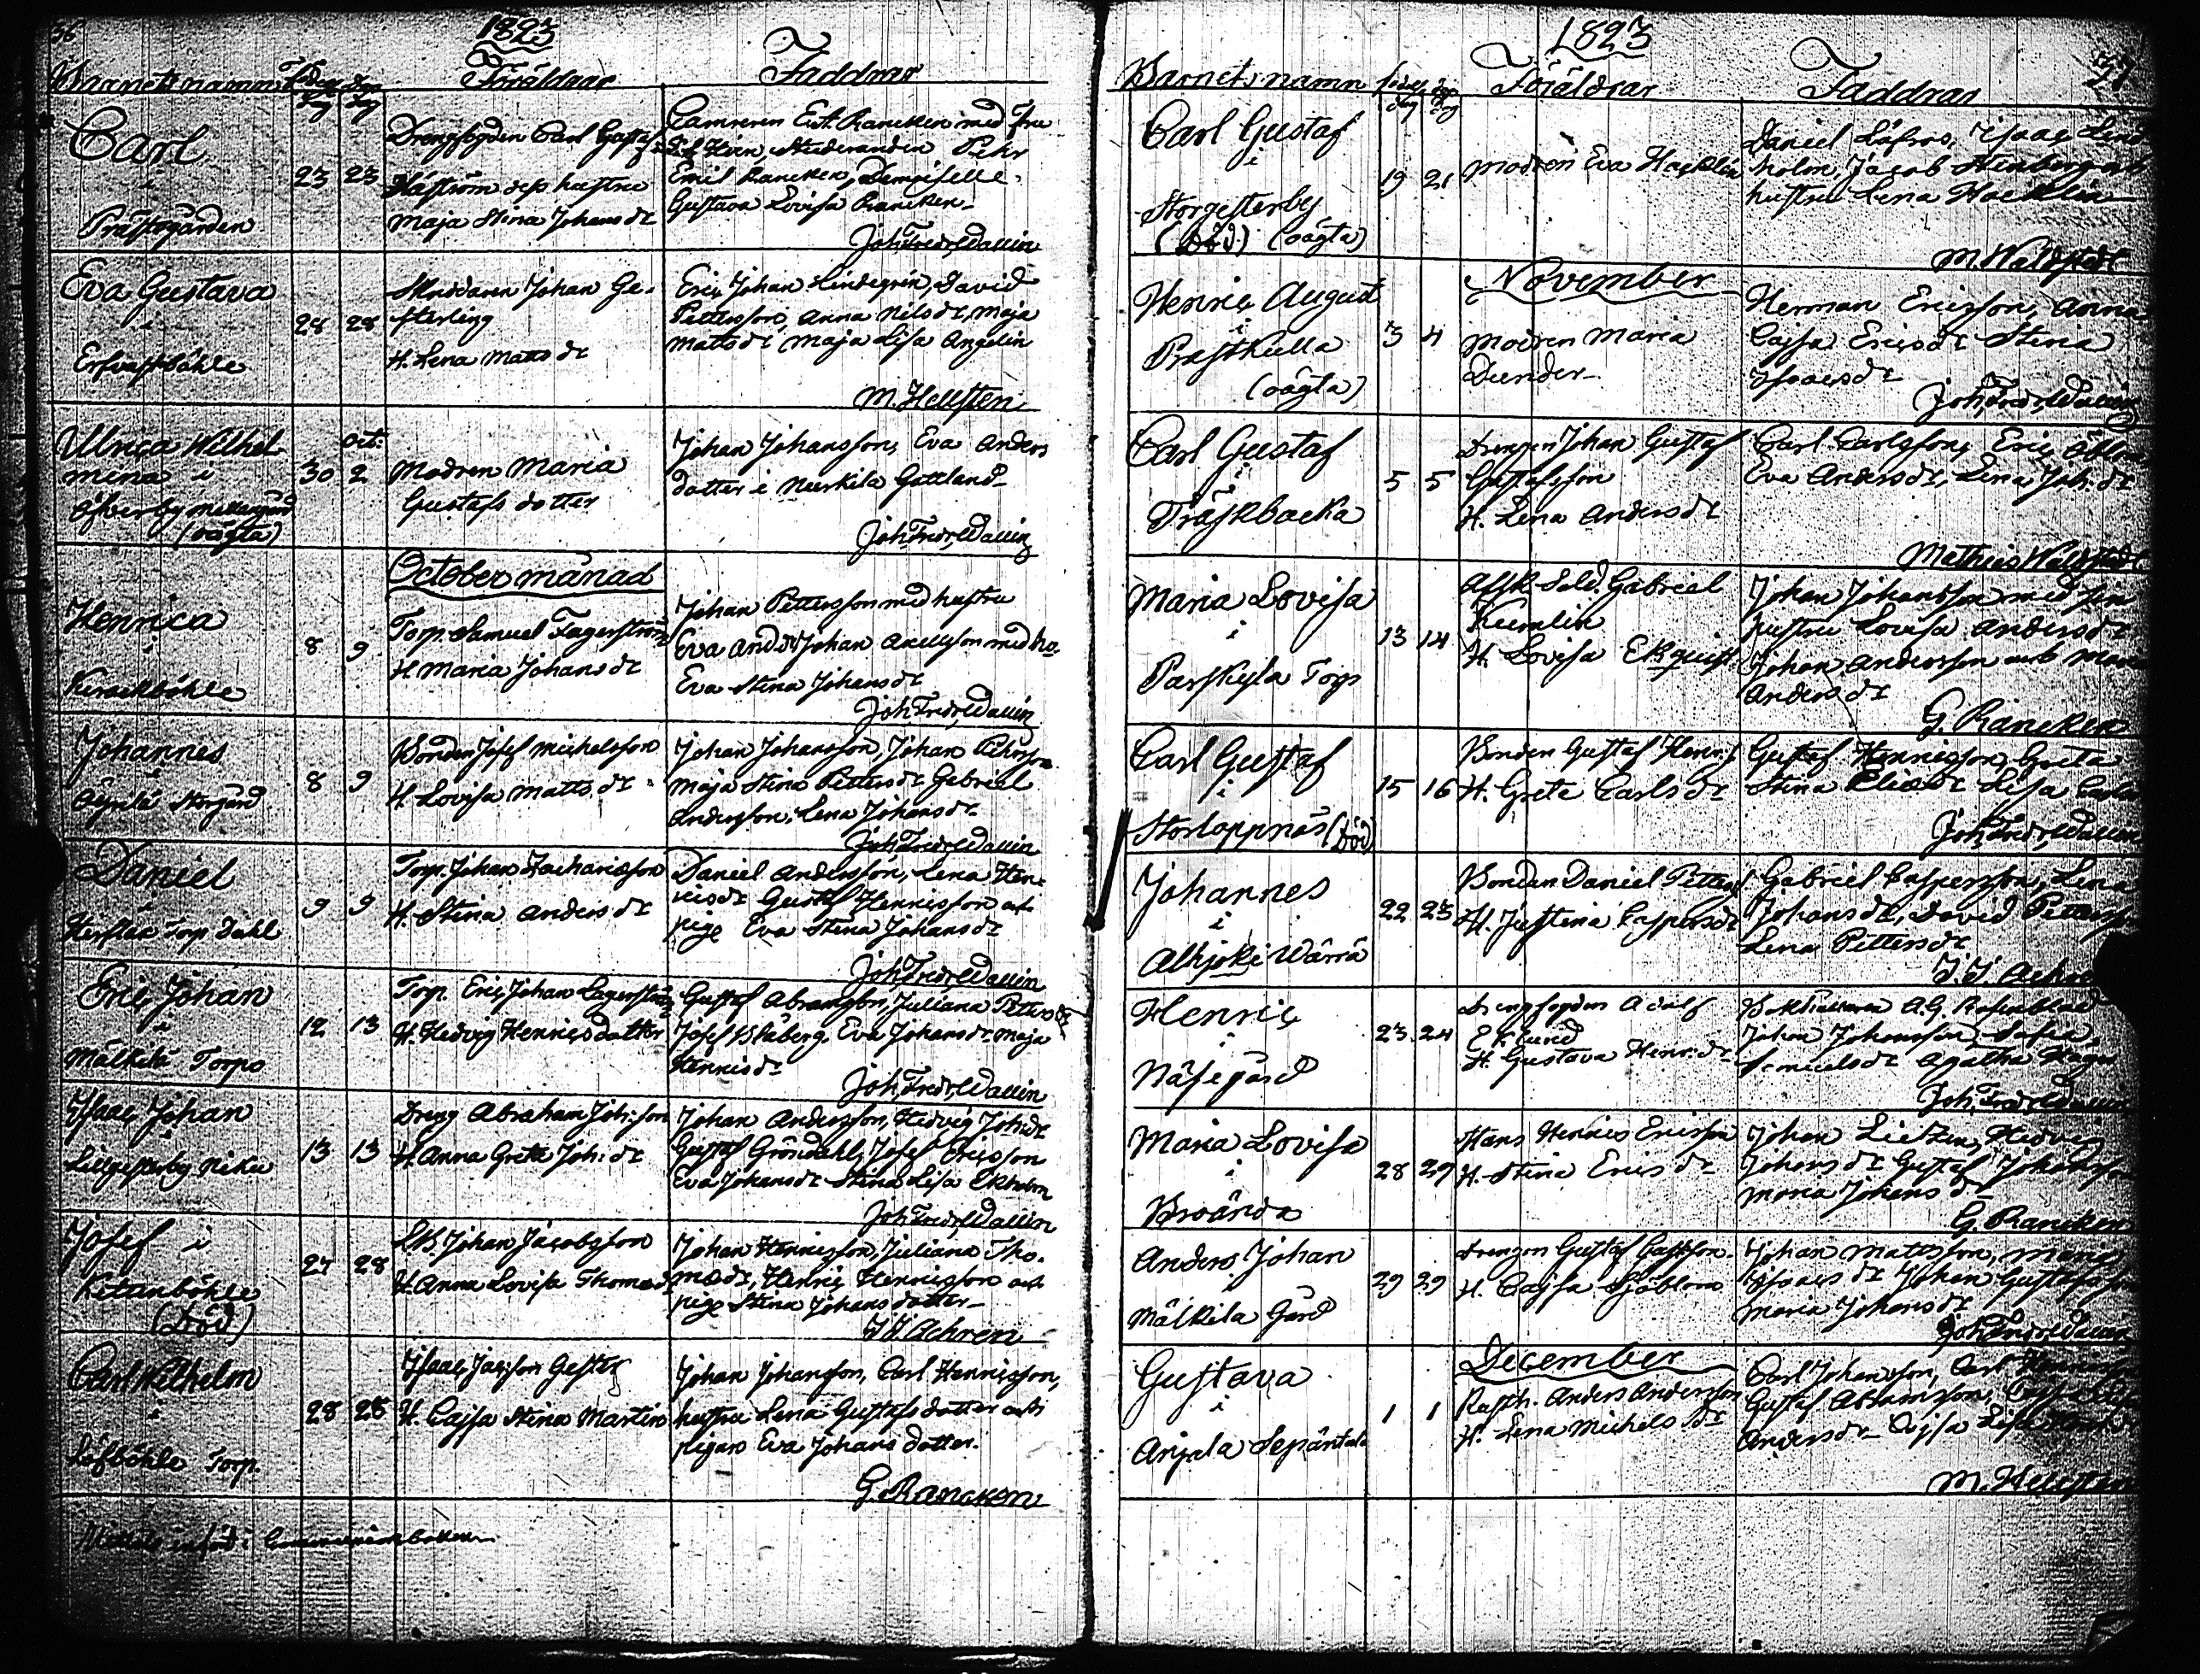 56
1823
Barnets namn Född dag Döp dag Föräldrar Faddrar
Carl
i
Prästegården
23 23
Drengfogden Carl Gustaf
Håström dess hustru
Maja Stina Johans dr
Camreren E.A. Rancken med Fru
Studeranden Pehr
Emil Rancken, Demoiselle
Gustava Lovisa Rancken
Joh. Fredr. Wallin
Eva Gustava
i
Ersvastböhle
28 28
Skreddaren Johan Ge-
sterling
H. Lena Matts dr
Eric Johan Lindegrén, David
Pettersson, Anna Nils dr, Maja
Matts dr Maja Lisa Angelin
M. Hellsten
Ulrica Wilhel-
mina i
Öfverby Mellangård
(oägta)
30
Oct:
2
Modren Maria
Gustafs dotter
Johan Johansson, Eva Anders
dotter i Nurkila Gottland
Joh. Fredr. Wallin
October månad
Henrica
i
8 9
Torp. Samuel Fagerström
H. Maria Johans dr
Johan Pettersson med hustru
Eva And. dr Johan Axellsson med ho.
Eva Stina Johans dr
Joh. Fredr. Wallin
Johannes
i
Storgård
8 9
Bonden Josef Michelsson
H. Lovisa Matts dr
Johan Johansson, Johan Pehrsson
Maja Stina Petters dr Gabriel
Andersson, Lena Johans dr
Joh. Fredr. Wallin
Daniel
i
Torp Dahl
9 9
Torp. Johan Zachariasson
H. Stina Anders dr
Daniel Andersson, Lena Hen-
rics dr Gustaf Henricsson och
piga Eva Stina Johans dr
Joh. Fredr. Wallin
Eric Johan
i
Mälkilä Torp
12 13
Torp. Eric Johan Lagerström
H. Hedvig Henrics dotter
Gustaf Abramsson, Juliana Petters dr
Josef Blåberg, Eva Johans dr Maja
Henrics dr
Joh. Fredr. Wallin
Isaac Johan
i
Lillgesterby Niku
13 13
Dreng Abraham Joh:sson
H. Anna Greta Joh: dr
Johan Andersson, Hedvig Joh: dr
Gustaf Gröndahl, Josef Ericsson
Eva Johans dr Stina Lisa Ekholm
Joh. Fredr. Wallin
Josef i
Kitunböhle
(död)
27 28
Johan Jacobsson
H. Anna Lovisa Thomas dr
Johan Henricsson, Juliana Tho-
mas dr, Henric Henricsson och
piga Stina Johans dotter
J J Achrén
Carl Wilhelm
i
Löfböhle Torp.
28 28
Isaac Jac:sson Gester
H. Cajsa Stina Martin
Johan Johansson, Carl Henricsson,
hustru Lena Gustafs dotter och
pigan Eva Johans dotter.
G. Rancken
införd i Communionboken
1823
57
Barnets namn födelse dag döp dag Föräldrar Faddrar
Carl Gustaf
i
Storgesterby
(död) (oägta)
19 21
Modren Eva Hacklin
Daniel Löfros, Isaac Lind
holm, Jacob Stenberg och
hustru Lena Hacklin
M. Waldstedt
November
Henric August
i
Prästkulla
(oägta)
3 4
Modren Maria
Dunder
Herman Ericsson, Anna
Cajsa Erics dr Stina
Isaacs dr
Joh. Fredr. Wallin
Carl Gustaf
i
Träskbacka
5 5
Drengen Johan Gustaf
Gustafsson
H. Lena Anders dr
Carl Carlsson, Eric
Eva Anders dr, Lena Joh: dr
Mathias Waldstedt
Maria Lovisa
i
Parskyla Torp
13 14
Afsk. Sold. Gabriel
Kumlin
H. Lovisa Ekquist
Johan Johansson med sin
hustru Lovisa Anders dr
Johan Andersson och Maria
Anders dr
G. Rancken
Carl Gustaf
i
Storloppnäs (död)
15 16
Bonden Gustaf Henrics
H. Greta Carls dr
Gustaf Henricsson, Greta
Stina Elias dr Lisa Carls
Joh. Fredr. Wallin
Johannes
i
Alhjoki Wärrä
22 23
Bonden Daniel Petters
H. Justina Caspers dr
Gabriel Caspersson, Lena
Johans dr, David Petters
Lena Petters dr
J. J. Achrén
Henric
i
Näsegård
23 24
Drengfogden Adolf
Eklund
H. Gustava Henr: dr
Bokhållaren A.G. Rosenblad
Johan Johansson, Sofia
Samuels dr Agatha
Joh. Fredr. Wallin
Maria Lovisa
i
Broända
28 29
Hans Henric Ericsson
H. Stina Erics dr
Johan Lietzen, Hedvig
Johans dr Gustaf Johansson
Maria Johans dr
G. Rancken
Anders Johan
i
Mälkila Gård
29 29
Drengen Gustaf Gustfsson
H. Cajsa Sjöblom
Johan Mattsson, Maria
Isaacs dr Johan Gustafsson
Maria Johans dr
Joh. Fredr. Wallin
December
Gustava
i
Anjala Sepäntalo
1 1
Rusth. Anders Andersson
H. Lena Michels dr
Carl Johansson, Carl Henricsson
Gustaf Abramsson, Cajsa
Anders dr Cajsa Lisa
M. Hellsten